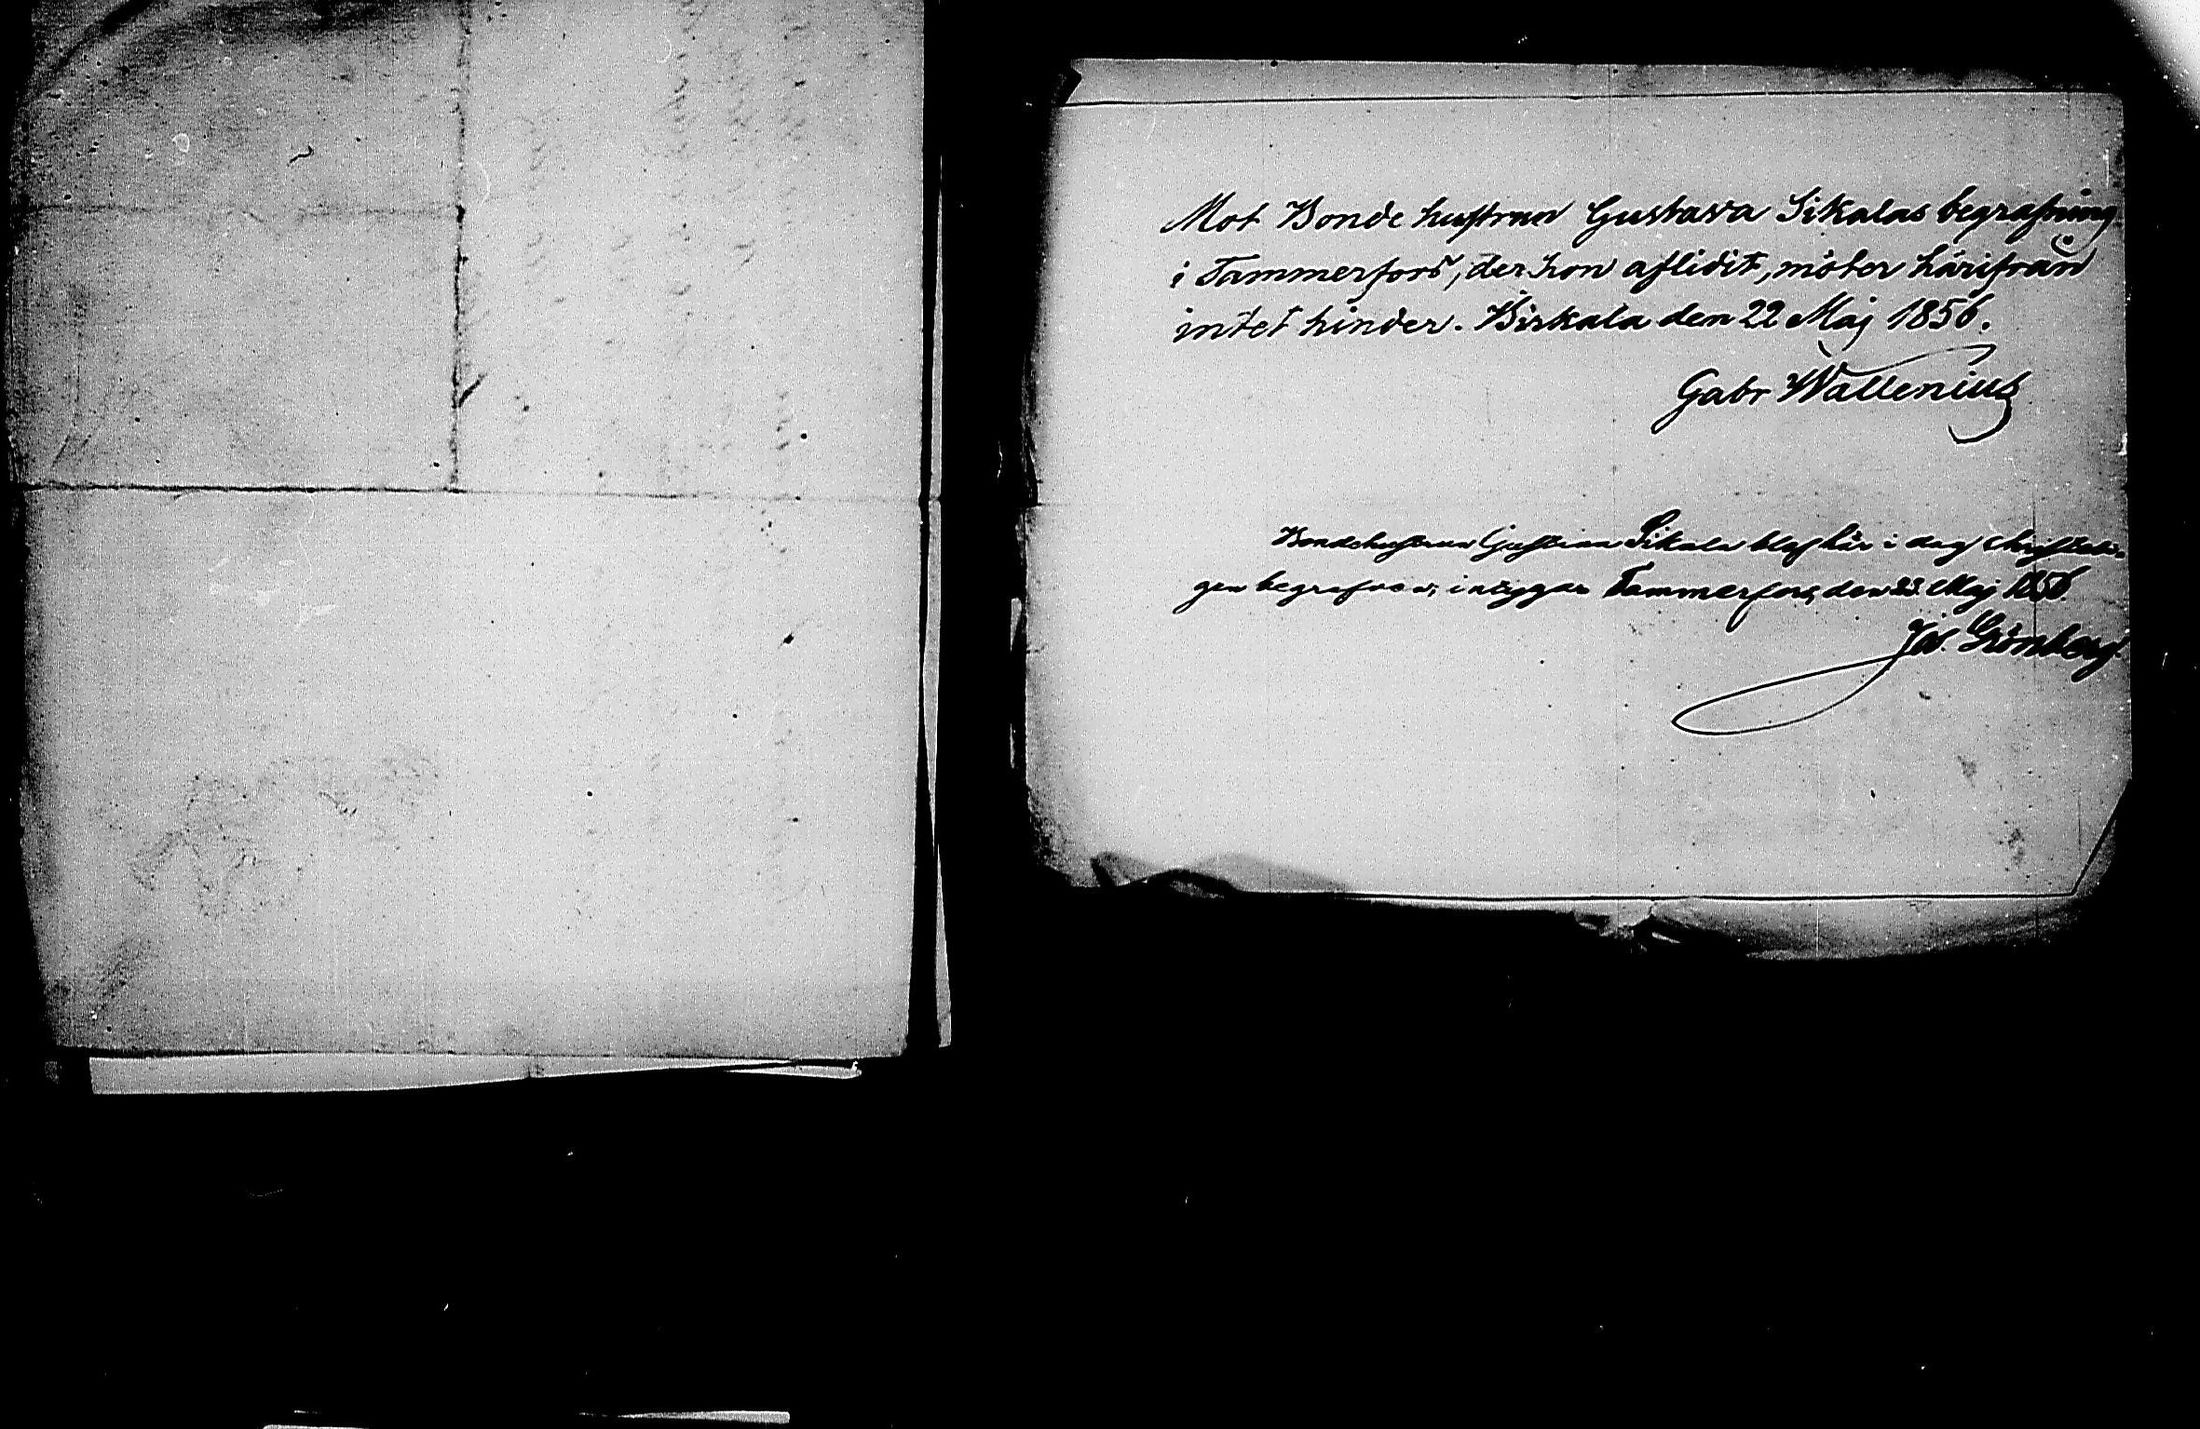 Mot Bonde hustrun Gustava Sikalas begrafning
i Tammerfors, der hon aflidit, möter härifrån
intet hinder. Birkala den 22 Maj 1856.
Gabr Wallenius
Bondehustrun Sikala blef här i dag christeli-
gen begrafven, intygar Tammerfors, den 23 Maj 1856.
Grönberg